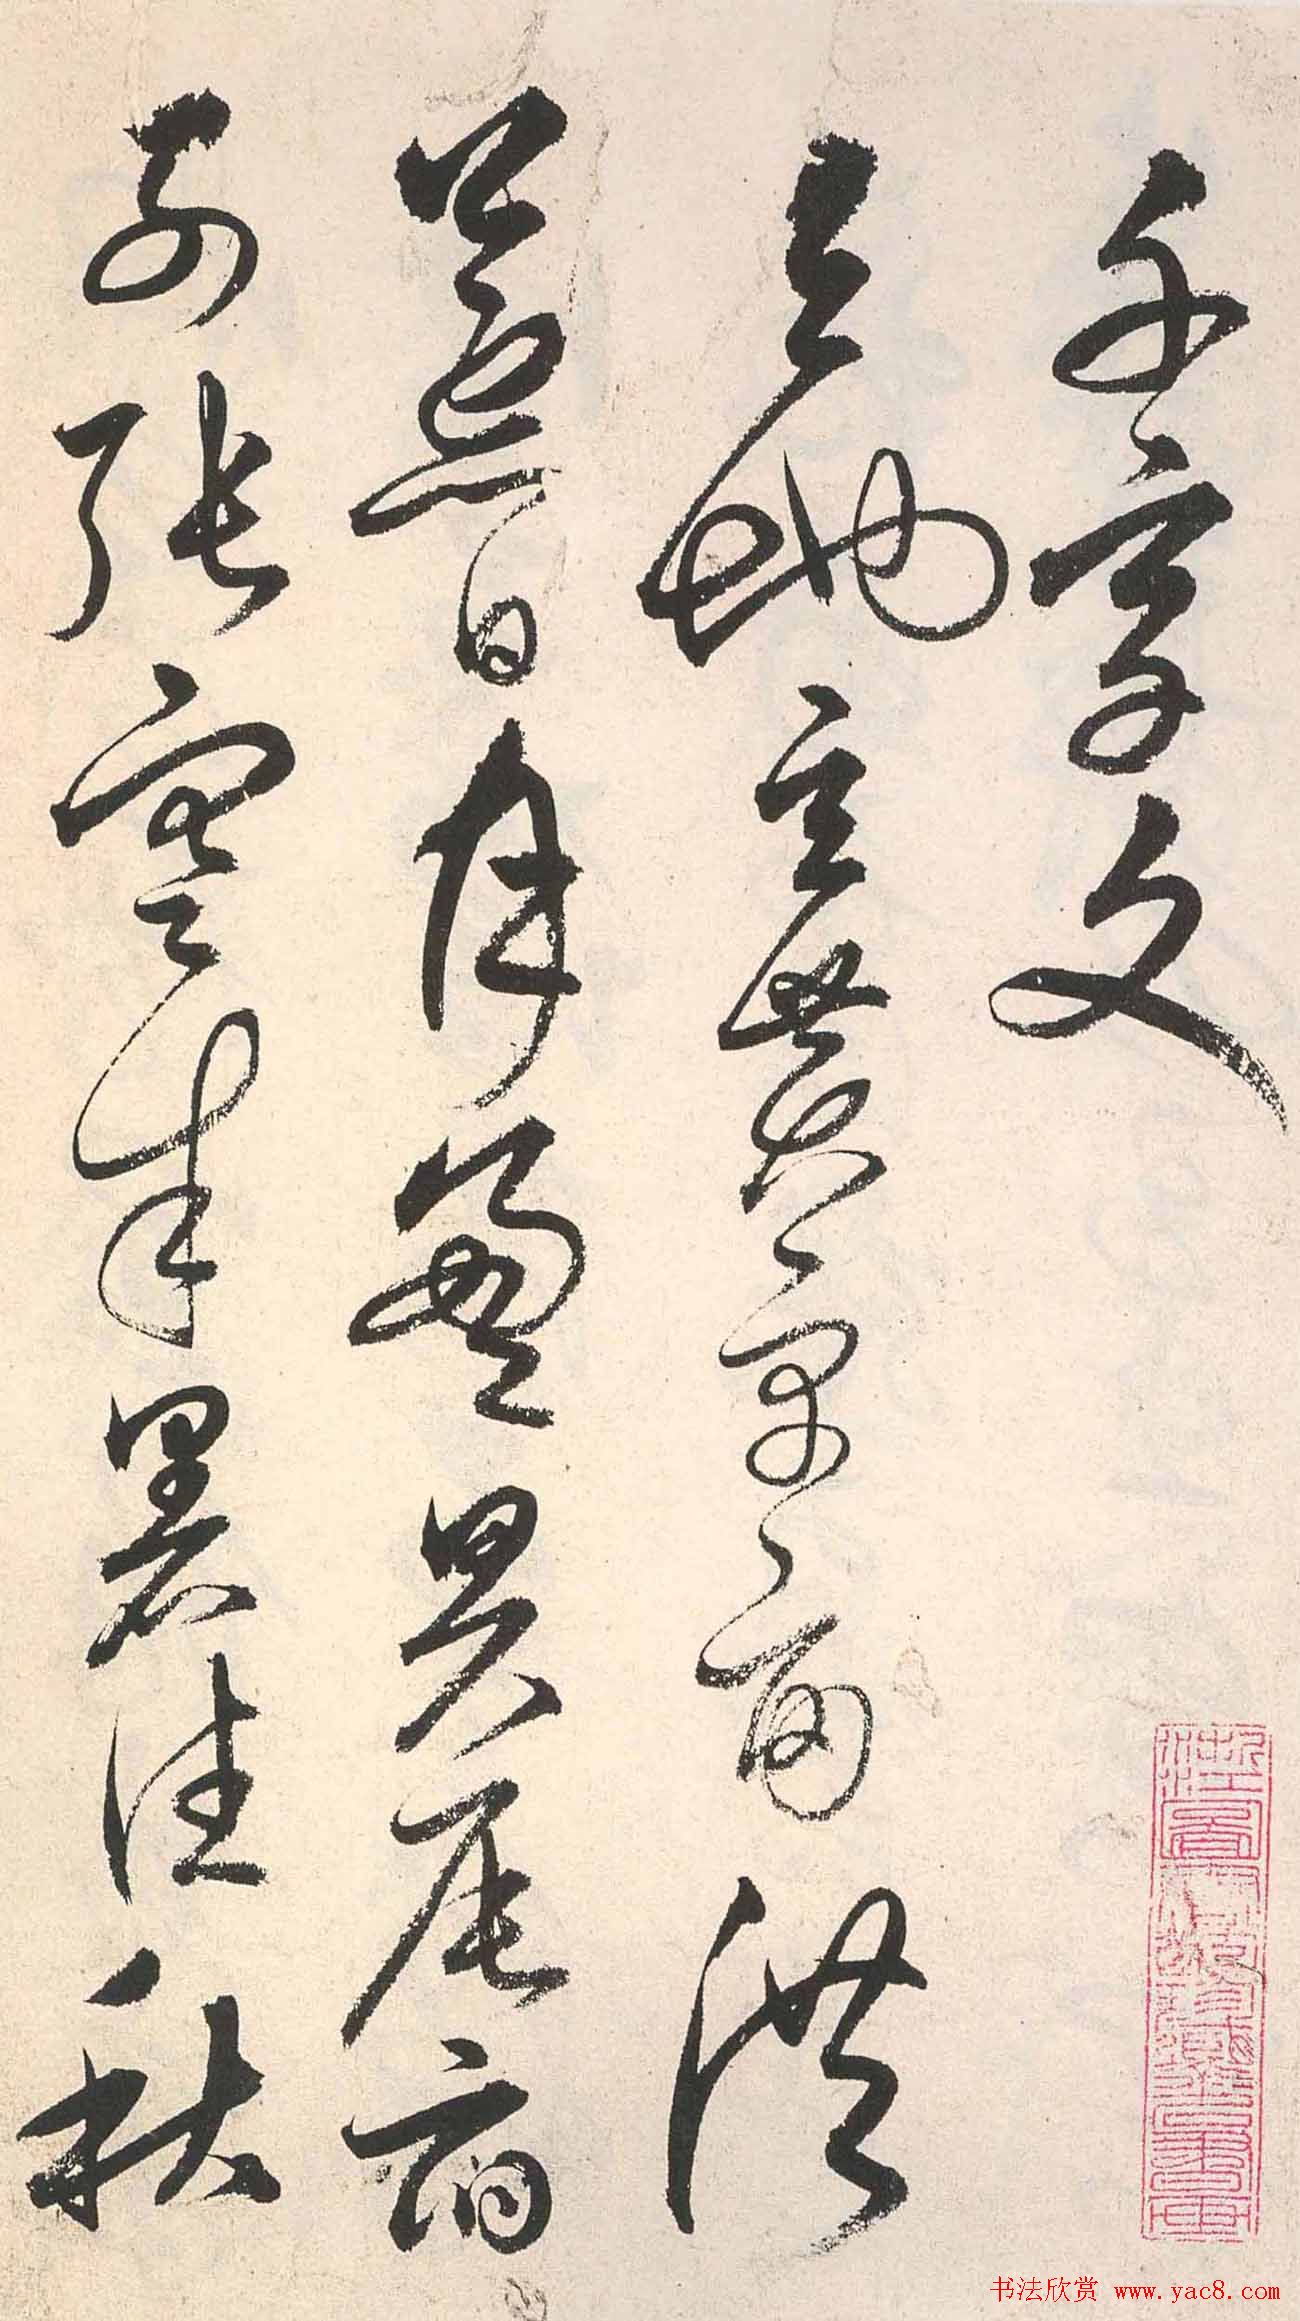 千字文
天地玄黄宇宙洪
荒日月盈昃辰宿
列張寒来暑往秋
书法欣赏 www.yac8.com